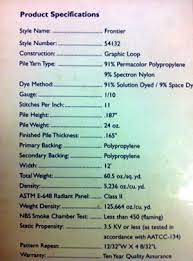 Product Specifications
Style Name: Frontier
Style Number: 54132
Construction: Graphic Loop
Pile Yarn Type: 91% Permacolor Polypropylene
9% Spectron Nylon
Dye Method: 91% Solution Dyed / 9% Space Dy
Gauge: 1/10
Stitches Per Inch: 11
Pile Height: .187"
Pile Weight: 24 oz.
Finished Pile Thickness: .165"
Primary Backing: Polypropylene
Secondary Backing: Polypropylene
Width: 12'
Total Weight: 60.5 oz./sq. yd.
Density: 5,236/cu. yd.
ASTM E-648 Radiant Panel: Class II
Weight Density: 125,664 oz./cu. yd.
NBS Smoke Chamber Test: Less than 450 (flaming)
Static Propensity: 3.5 KV or less (as tested in
accordance with AATCC-134)
Pattern Repeat: 12/32"W X 4 8/32"L
Warranty: Ten Year Quality Assurance